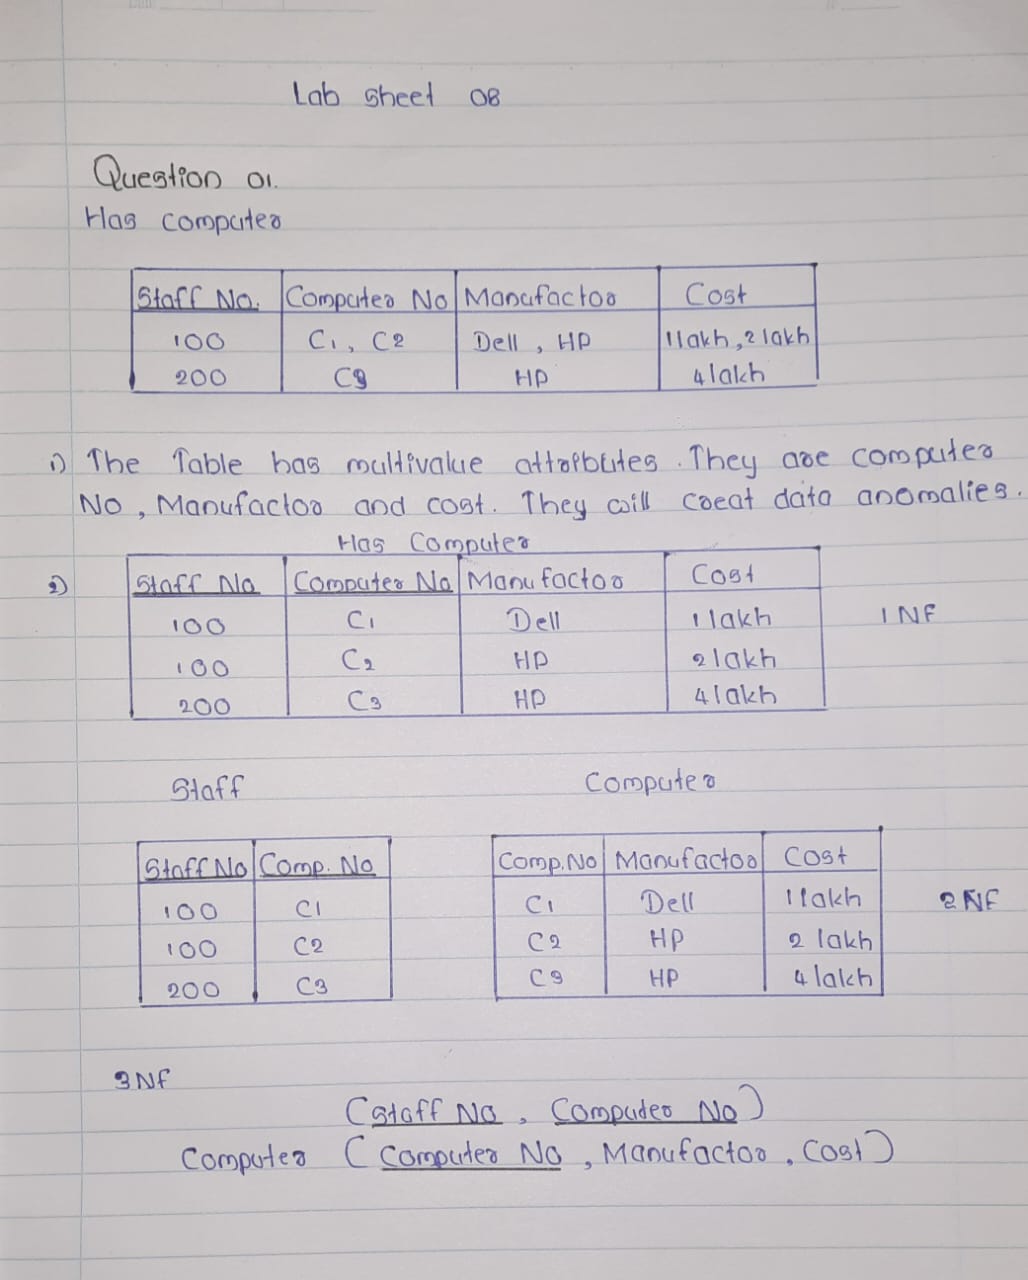 Lab sheet 08
Question 01.
Has computer
Staff No. Computer No Manufactor Cost
100 C1, C2 Dell, HP 1lakh, 2 lakh
200 C3 HP 4 lakh
1) The Table has multivalue attrbutes. They are computer
No, Manufactor and cost. They will creat data anomalies.
Has Computer
2) Staff No Computer No Manufactor Cost
100 C1 Dell 1 lakh 1 NF
100 C2 HP 2 lakh
200 C3 HP 4 lakh
Staff Computer
Staff No Comp. No Comp. No Manufactor Cost
100 C1 C1 Dell 1 lakh 2 NF
100 C2 C2 HP 2 lakh
200 C3 C3 HP 4 lakh
3 NF
(Staff No, Computer No)
Computer (Computer No, Manufactor, Cost)